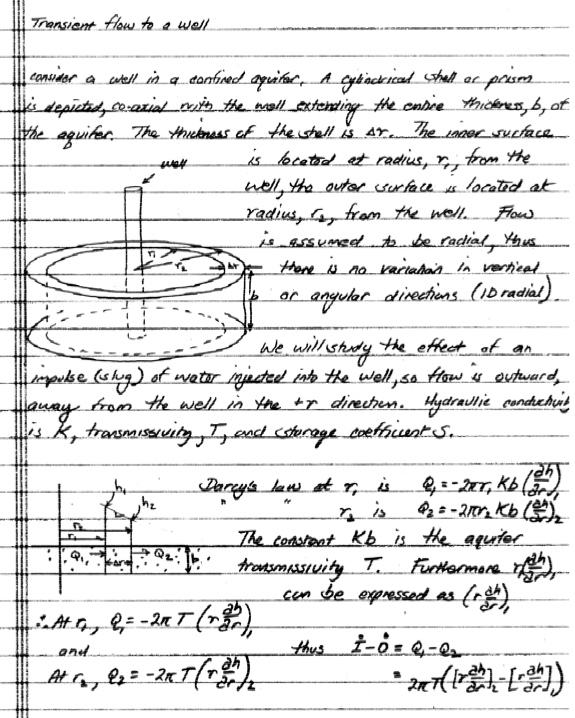 Transient flow to a well
consider a well in a confined aquifer. A cylindrical shell or prism
is depicted, co-axial with the well extending the entire thickness, b, of
the aquifer. The thickness of the shell is Δr. The inner surface
is located at radius, r₁, from the
well
well, the outer surface is located at
radius, r₂, from the well. Flow
is assumed to be radial, thus
r₁ r₂ Δr
there is no variation in vertical
b
or angular directions (1D radial).
We will study the effect of an
impulse (slug) of water injected into the well, so flow is outward,
away from the well in the +r direction. Hydraulic conductivity
is K, transmissivity, T, and storage coefficient S.
h₁ h₂
Darcy's law at r₁ is Q₁ = -2πr₁ Kb (∂h/∂r)₁
" " r₂ is Q₂ = -2πr₂ Kb (∂h/∂r)₂
r₂
r₁
The constant Kb is the aquifer
Q₁ Δr Q₂ b
transmissivity T. Furthermore r₁(∂h/∂r)₁
can be expressed as (r ∂h/∂r)₁
∴ At r₁, Q₁ = -2π T (r ∂h/∂r)₁
and thus İ - Ȯ = Q₁ - Q₂
At r₂, Q₂ = -2π T (r ∂h/∂r)₂ = 2πT([r ∂h/∂r]₂ - [r ∂h/∂r]₁)